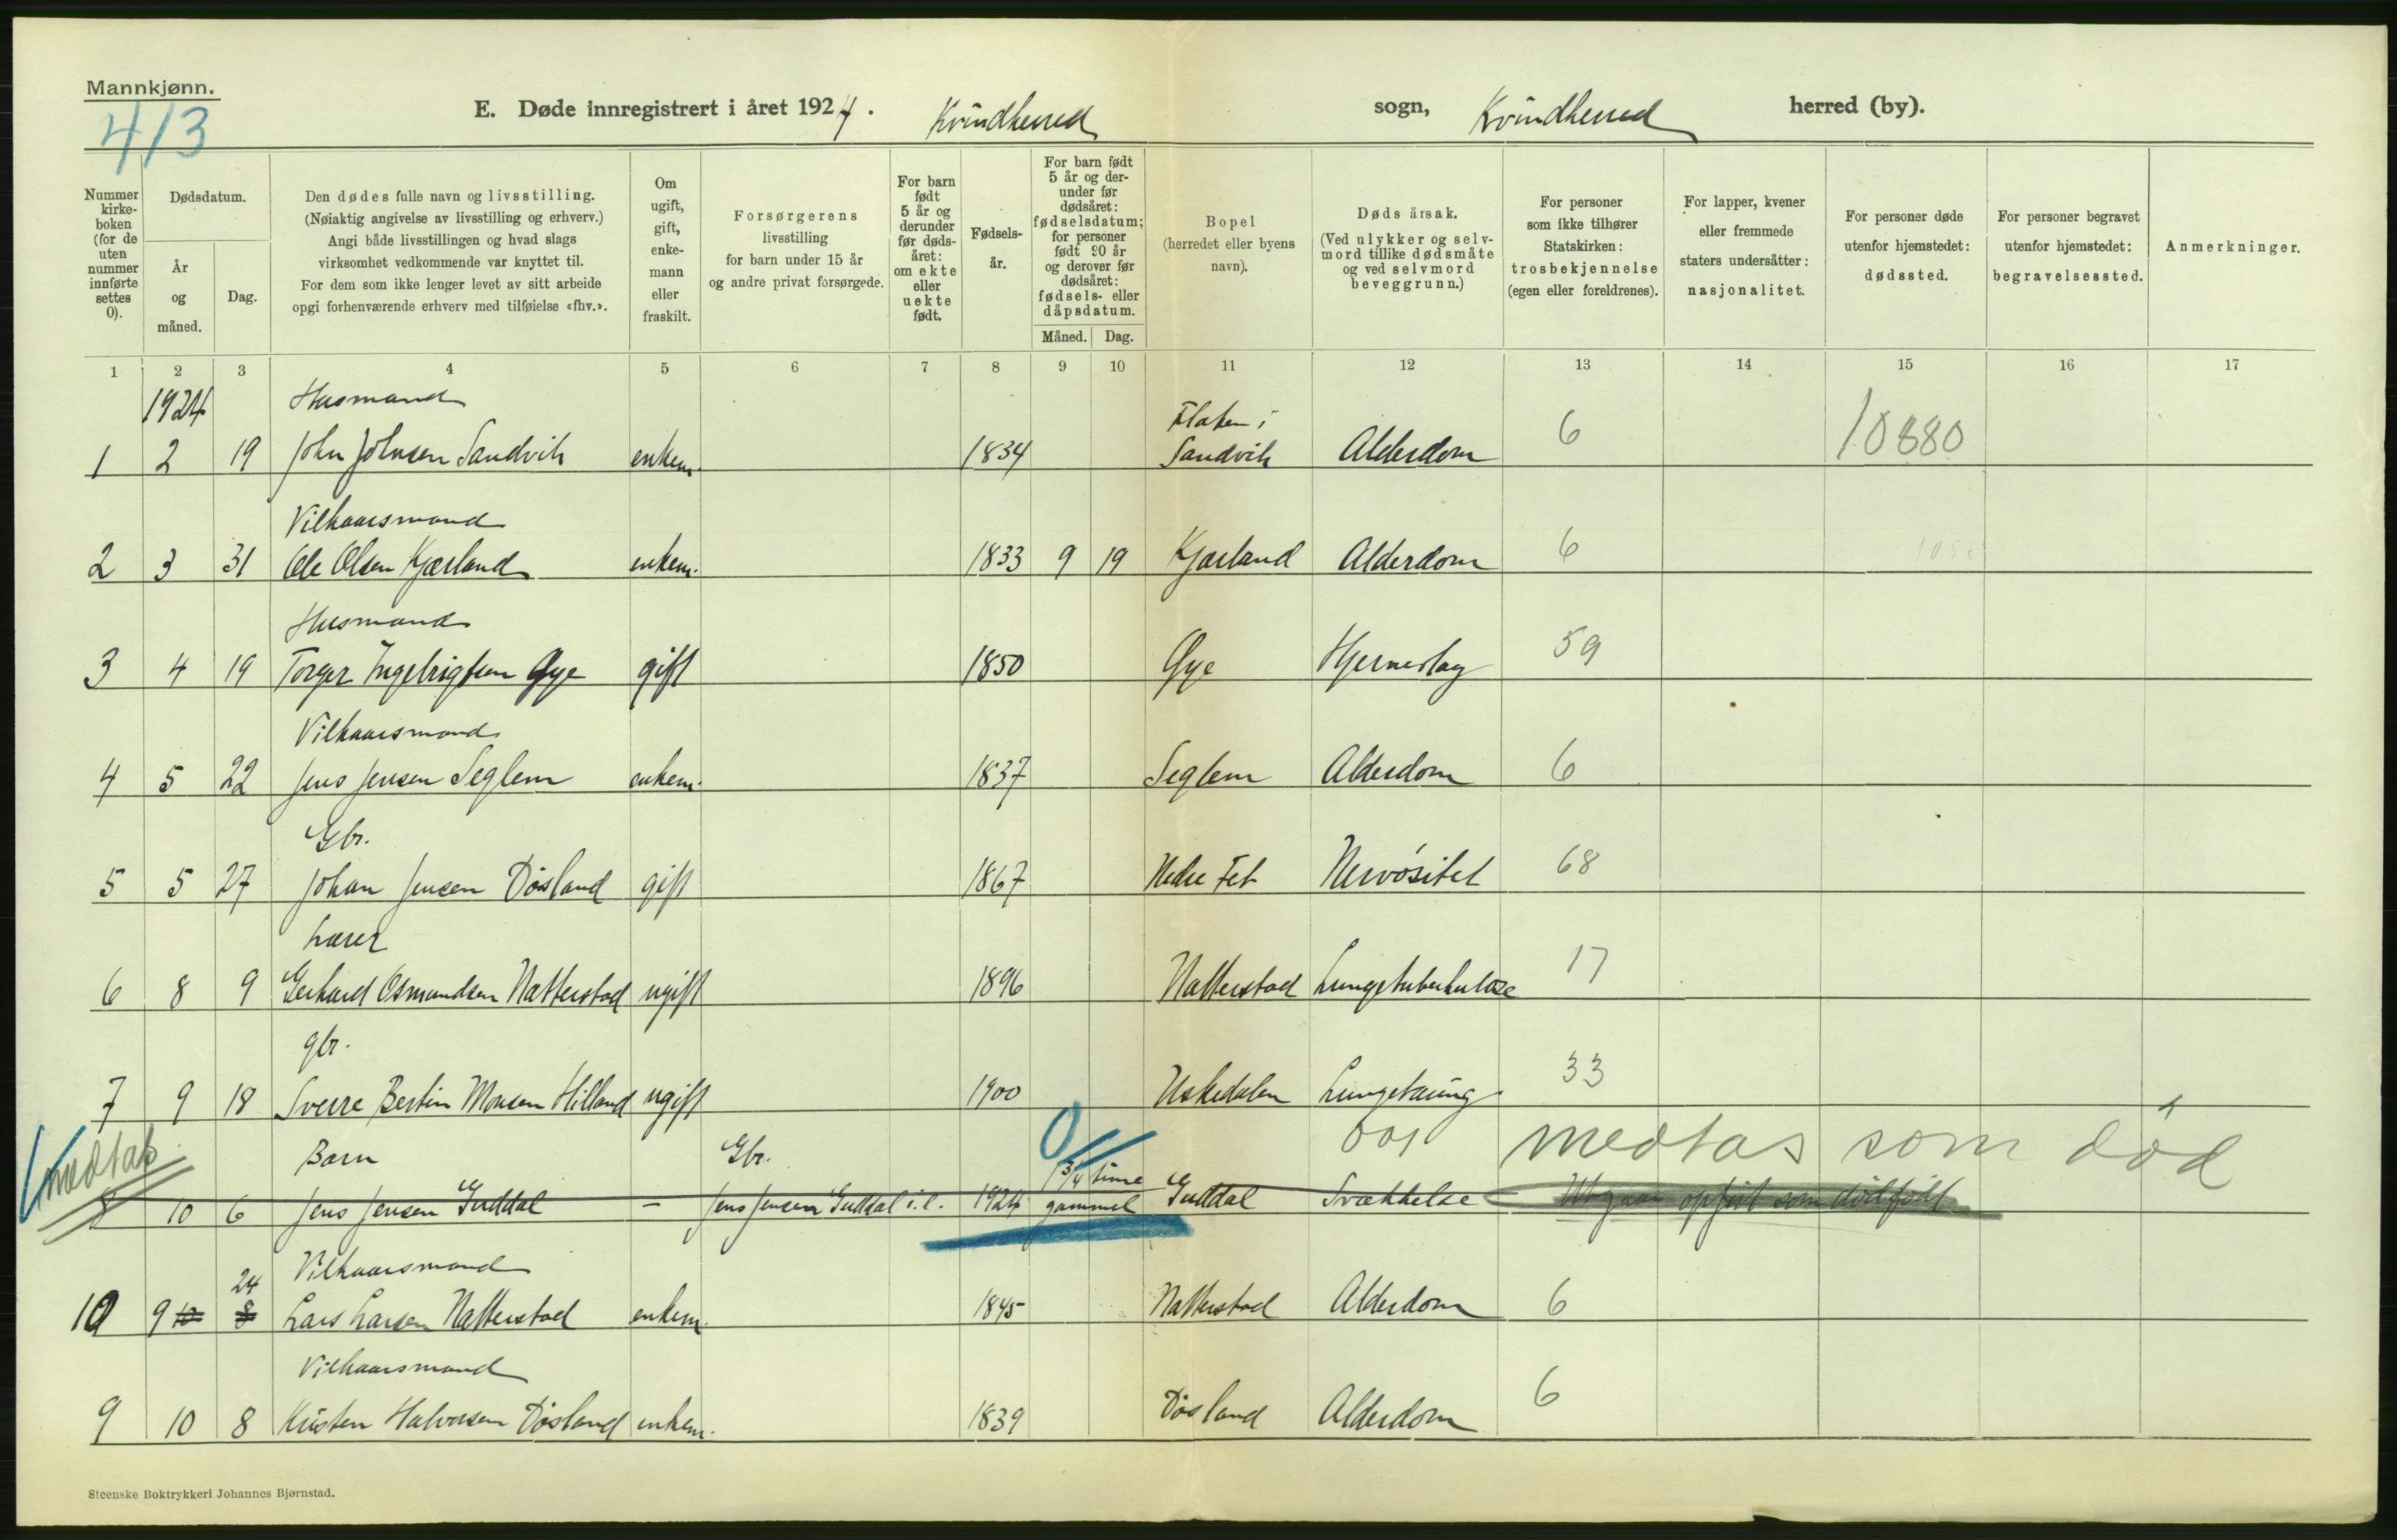 Mannkjønn.
413
E. Døde innregistrert i året 1924. Kvindherred sogn, Kvindherred herred (by).
Nummer kirke- boken (for de uten nummer innførte settes 0).
Dødsdatum.
År og måned.
Dag.
Den dødes fulle navn og livsstilling.
(Nøiaktig angivelse av livsstilling og erhverv.)
Angi både livsstillingen og hvad slags
virksomhet vedkommende var knyttet til.
For dem som ikke lenger levet av sitt arbeide
opgi forhenværende erhverv med tilføielse «fhv.».
Om ugift, gift, enke- mann eller fraskilt.
Forsørgerens
livsstilling
for barn under 15 år
og andre privat forsørgede.
For barn født 5 år og derunder før døds- året: om ekte eller uekte født.
Fødsels- år.
For barn født 5 år og der- under før dødsåret: fødselsdatum; for personer født 90 år og derover før dødsåret: fødsels- eller dåpsdatum.
Måned. Dag.
Bopel
(herredet eller byens
navn).
Døds årsak.
(Ved ulykker og selv-
mord tillike dødsmåte
og ved selvmord
beveggrunn.)
For personer
som ikke tilhører
Statskirken:
trosbekjennelse
(egen eller foreldrenes).
For lapper, kvener
eller fremmede
staters undersåtter:
nasjonalitet.
For personer døde
utenfor hjemstedet:
dødssted.
For personer begravet
utenfor hjemstedet:
begravelsessted.
Anmerkninger.
1 2 3 4 5 6 7 8 9 10 11 12 13 14 15 16 17
1924 Husmand Flaten i
1 2 19 John Johnsen Sandvik enkem. 1834 Sandvik Alderdom 6 10880
Vilkaarsmand
2 3 31 Ole Olsen Kjærland enkem. 1833 9 19 Kjærland Alderdom 6
Husmand
3 4 19 Torger Ingebrigtsen Øye gift 1850 Øye Hjerneslag 59
Vilkaarsmand
4 5 22 Jens Jensen Seglem enkem. 1837 Seglem Alderdom 6
Gbr.
5 5 27 Johan Jensen Døsland gift 1867 Nedre Fet Nervøsitet 68
Lærer
6 8 9 Gerhard Osmundsen Natterstad ugift 1896 Natterstad Lungetuberkulose 17
gbr.
7 9 18 Sverre Bertin Monsen Hilland ugift 1900 Uskedalen Lungetæring 33
medtas Barn Gbr. 0 1 3/4 time 001 medtas som død
8 10 6 Jens Jensen Guddal – Jens Jensen Guddal i.l. 1924 gammel Guddal Svækkelse opført som dødfødt
24 Vilkaarsmand
10 9 10 8 Lars Larsen Natterstad enkem. 1845 Natterstad Alderdom 6
Vilkaarsmand
9 10 8 Kristen Halvorsen Døsland enkem. 1839 Døsland Alderdom 6
Steenske Boktrykkeri Johannes Bjørnstad.